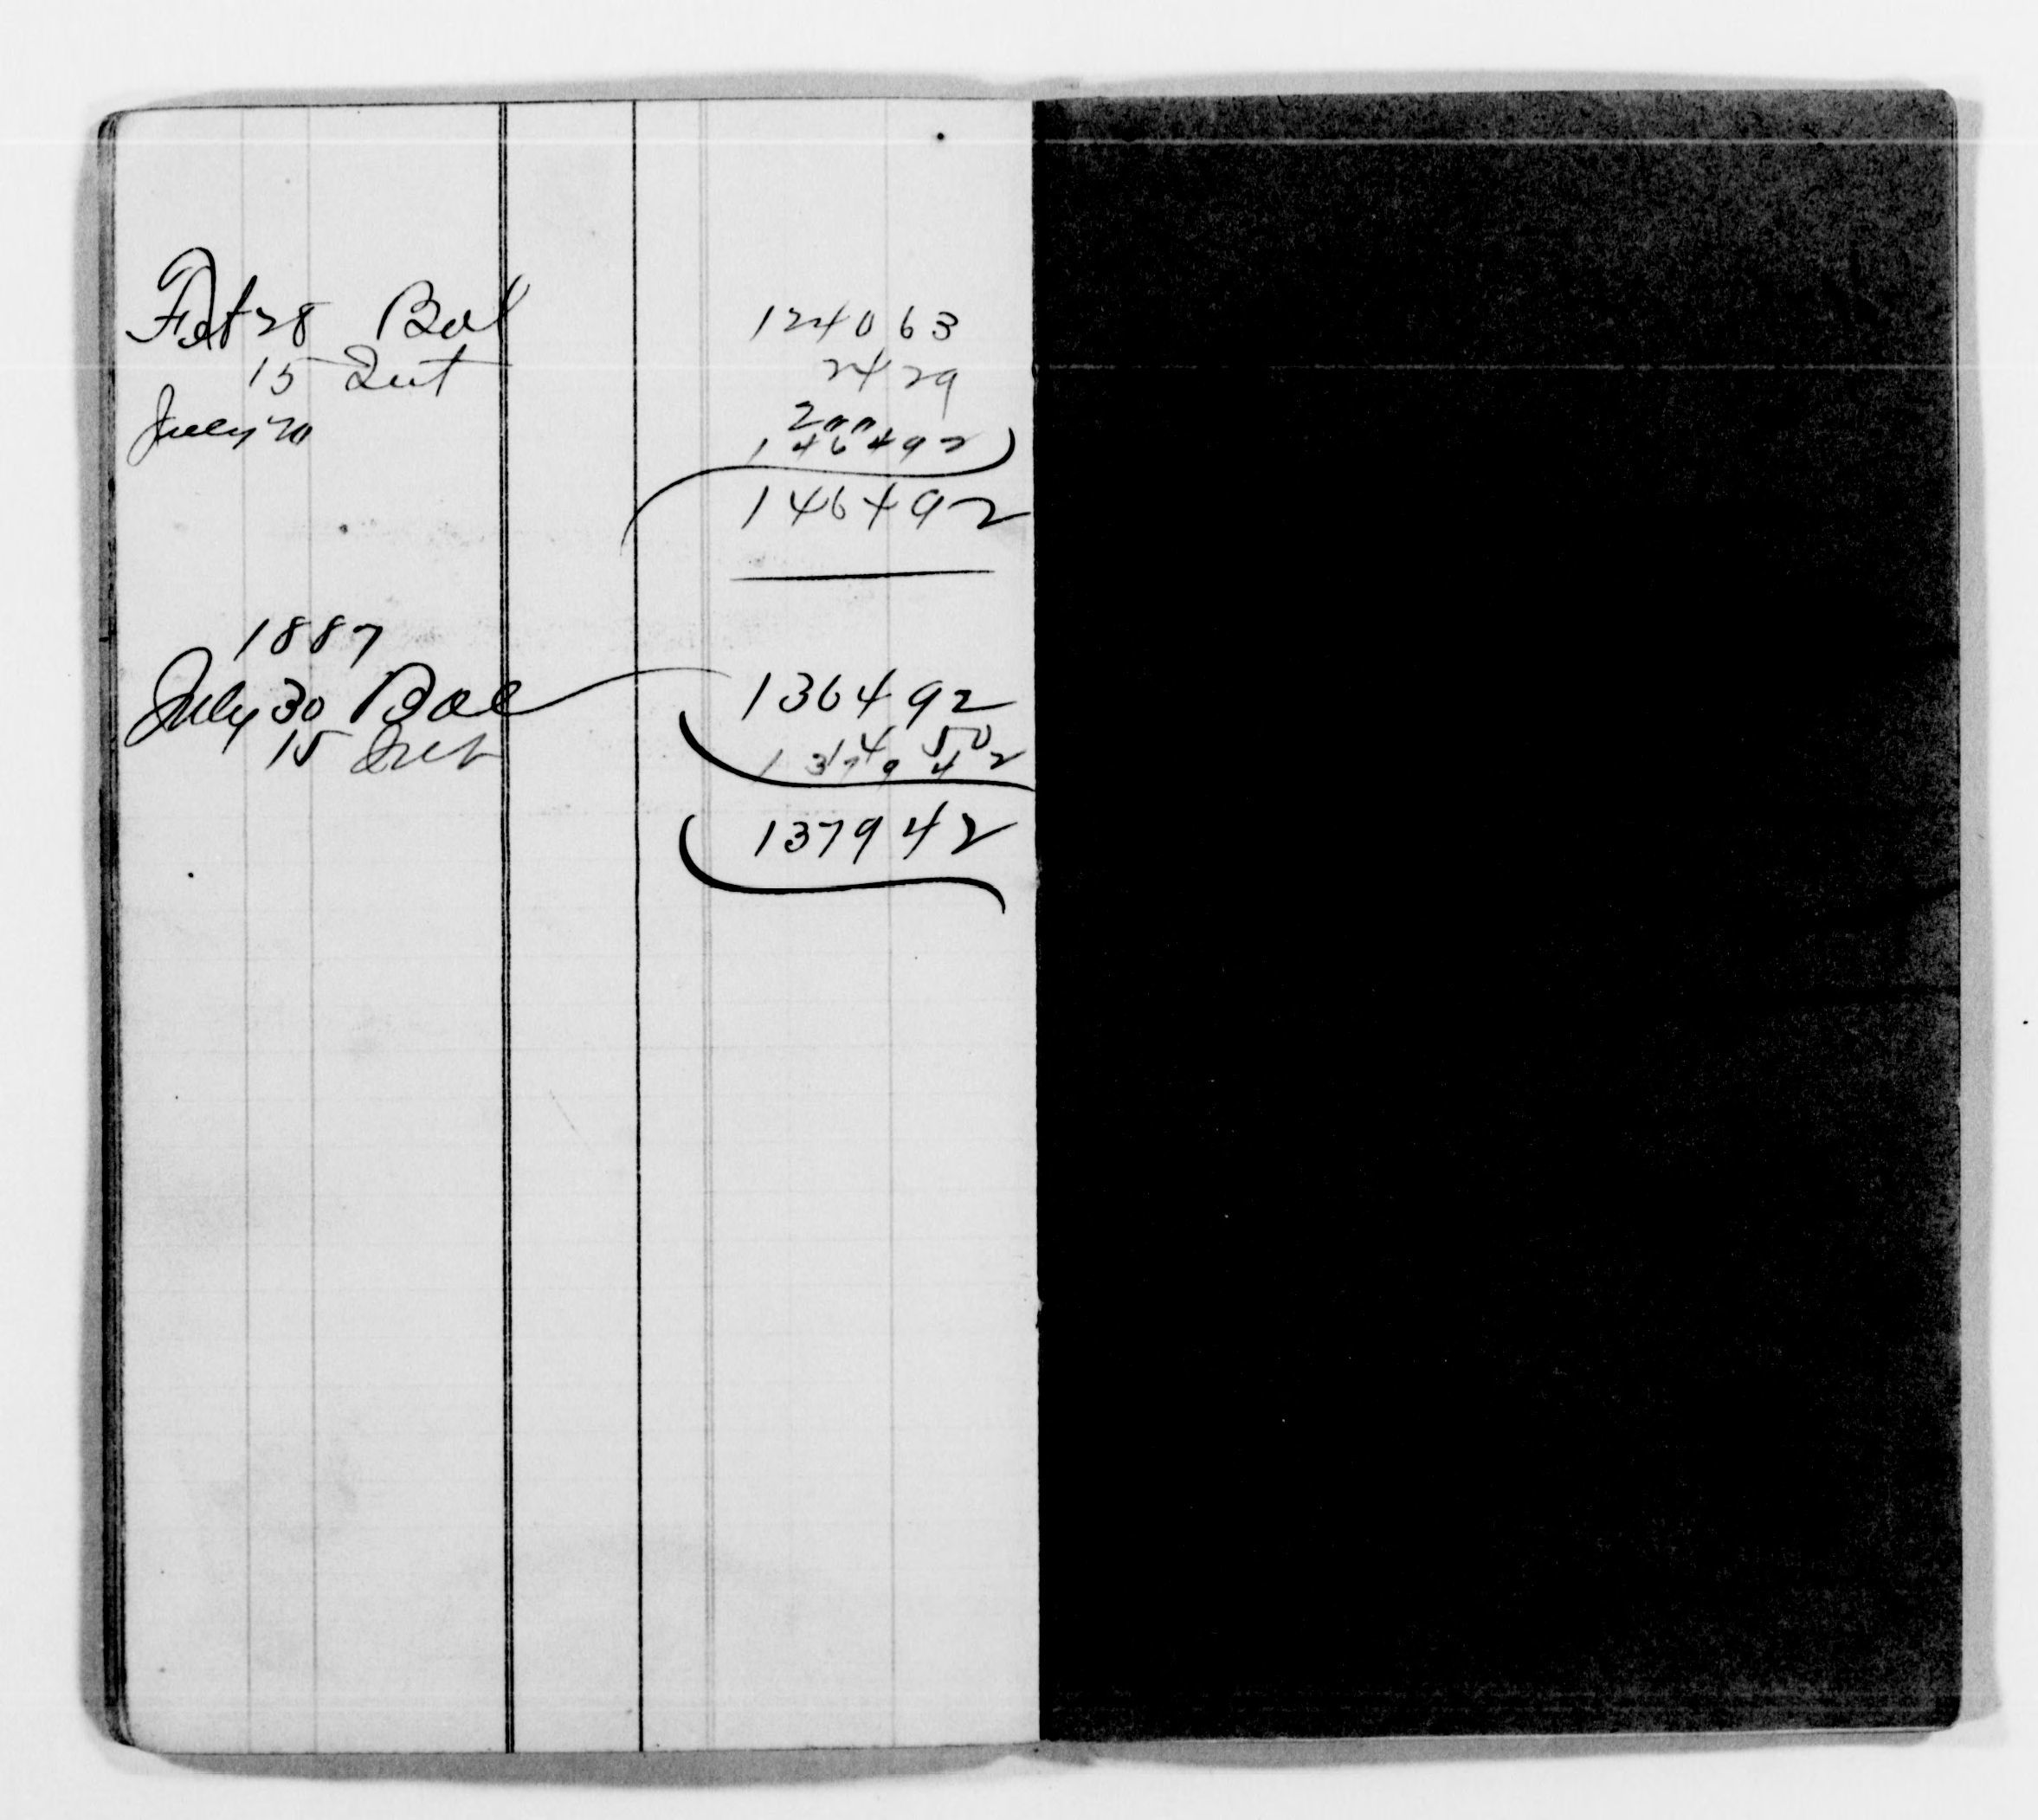 Feb 28 Bal 1240 63
15 Int 24 29
July 20 200
1464 92
1464 92
1887
July 30 Bal 1364 92
15 Int 14 50
1379 42
1379 42